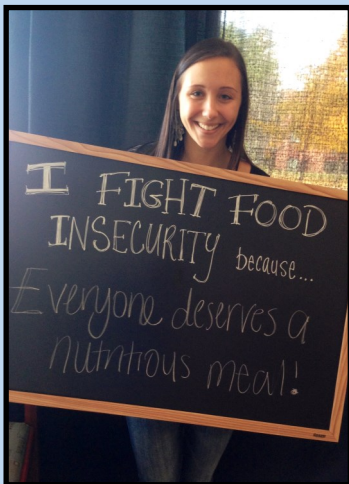 I FIGHT FOOD
INSECURITY because...
Everyone deserves a
nutritious meal!